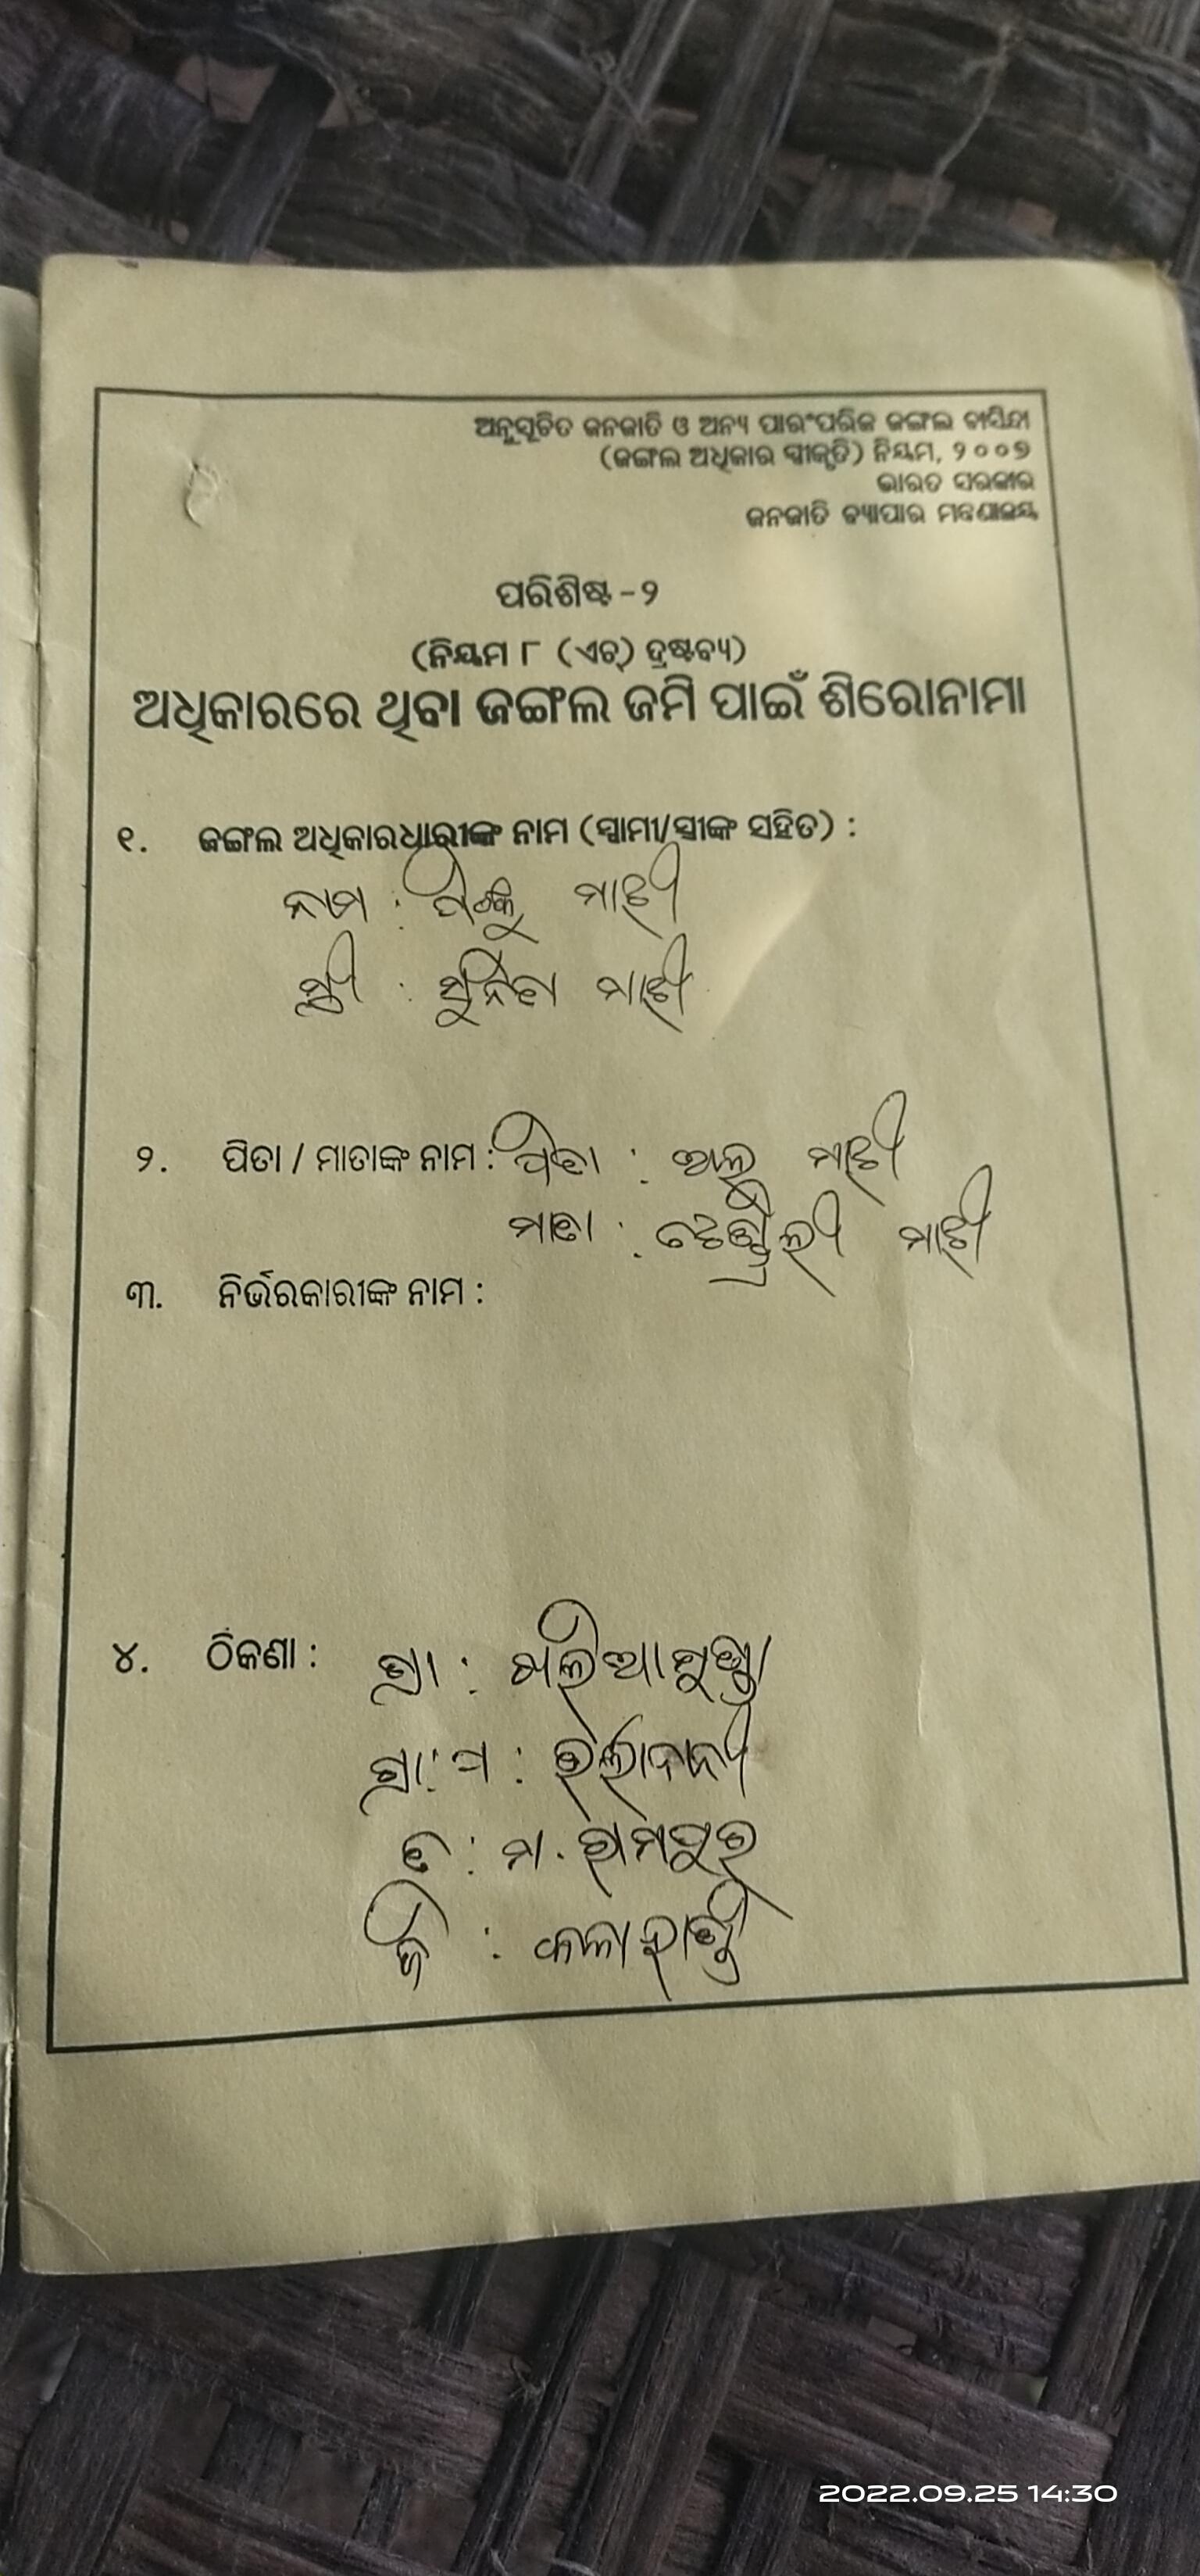 ଅନୁସୂଚିତ ଜନଜାତି ଓ ଅନ୍ୟ ପାରଂପରିକ ଜଙ୍ଗଲ ବାସିନ୍ଦା
(ଜଙ୍ଗଲ ଅଧିକାର ସ୍ୱୀକୃତି) ନିୟମ, ୨୦୦୭
ଭାରତ ସରକାର
ଜନଜାତି ବ୍ୟାପାର ମନ୍ତ୍ରଣାଳୟ
ପରିଶିଷ୍ଟ -୨
(ନିୟମ ୮ (ଏଚ୍) ଦ୍ରଷ୍ଟବ୍ୟ)
ଅଧିକାରରେ ଥିବା ଜଙ୍ଗଲ ଜମି ପାଇଁ ଶିରୋନାମା
୧. ଜଙ୍ଗଲ ଅଧିକାରଧାରୀଙ୍କ ନାମ (ସ୍ୱାମୀ/ସ୍ତ୍ରୀଙ୍କ ସହିତ) :
ନାମ : ମାଝୀ
ସ୍ତ୍ରୀ : ସୁନିତା ମାଝୀ
୨. ପିତା / ମାତାଙ୍କ ନାମ : ପିତା : ମାଝୀ
ମାତା : ମାଝୀ
୩. ନିର୍ଭରକାରୀଙ୍କ ନାମ :
୪. ଠିକଣା : ଗ୍ରା :
ଗ୍ରା:ପ :
ତ : ମ. ରାମପୁର
ଜି : କଳାହାଣ୍ଡି
2022.09.25 14:30